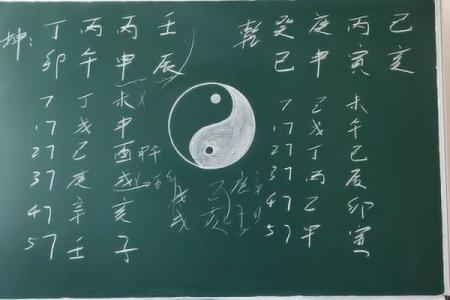 坤: 丁 丙 丙 壬 乾 癸 庚 丙 己
卯 午 申 辰 巳 申 寅 亥
7 丁 未 7 己 未
17 戊 申 17 戊 午
27 己 酉 27 丁 巳
37 庚 戌 37 丙 辰
47 辛 亥 47 乙 卯
57 壬 子 57 甲 寅